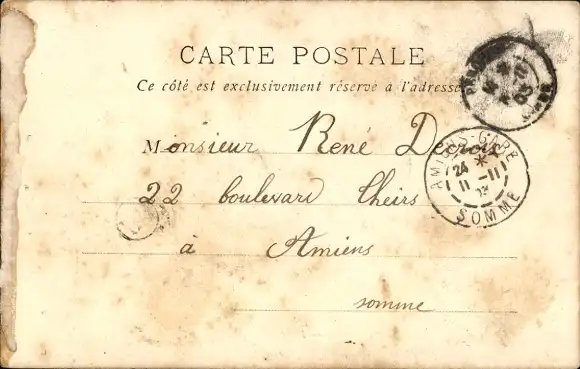 CARTE POSTALE
Ce côté est exclusivement réservé à l'adresse
Monsieur René Decroix
22 boulevard Thiers
à Amiens
somme
AMIENS-GARE
24
11 -11
03
SOMME